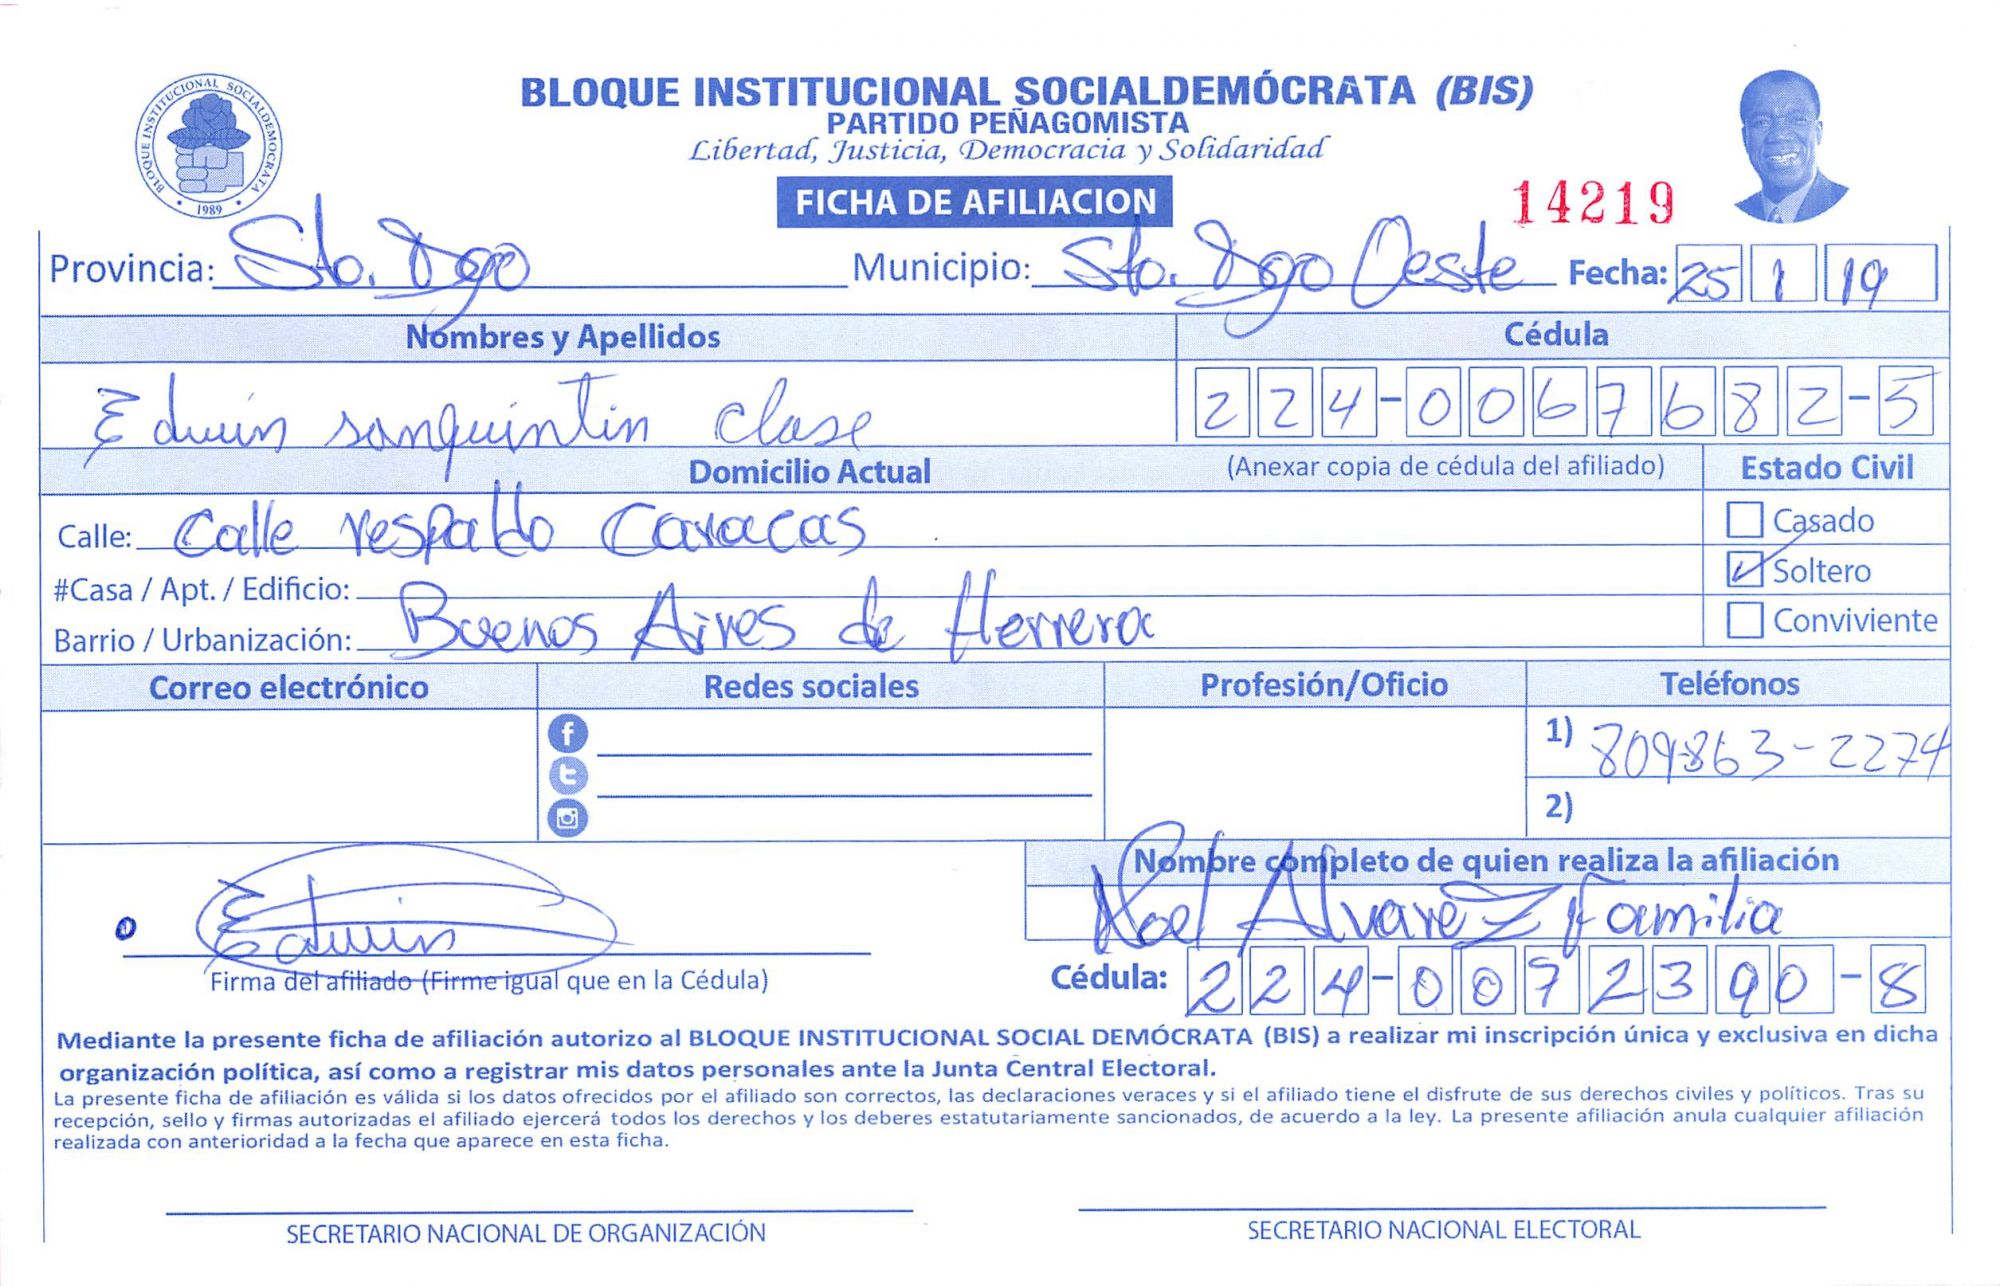 BLOQUE INSTITUCIONAL SOCIALDEMÓCRATA (BIS)
PARTIDO PEÑAGOMISTA
Libertad, Justicia, Democracia y Solidaridad
BLOQUE INSTITUCIONAL SOCIALDEMOCRATA
• 1989 •
FICHA DE AFILIACION
14219
Provincia: Sto. Dgo Municipio: Sto. Dgo Oeste Fecha: 25 1 19
Nombres y Apellidos Cédula
Edwin sanquintin clase 224-0067682-5
Domicilio Actual (Anexar copia de cédula del afiliado) Estado Civil
Calle: Calle respaldo Caracas Casado
#Casa / Apt. / Edificio: Soltero
Barrio / Urbanización: Buenos Aires de Herrera Conviviente
Correo electrónico Redes sociales Profesión/Oficio Teléfonos
1) 809-863-2274
2)
Nombre completo de quien realiza la afiliación
Noel Alvarez Familia
Edwin
Firma del afiliado (Firme igual que en la Cédula) Cédula: 224-0072390-8
Mediante la presente ficha de afiliación autorizo al BLOQUE INSTITUCIONAL SOCIAL DEMÓCRATA (BIS) a realizar mi inscripción única y exclusiva en dicha
organización política, así como a registrar mis datos personales ante la Junta Central Electoral.
La presente ficha de afiliación es válida si los datos ofrecidos por el afiliado son correctos, las declaraciones veraces y si el afiliado tiene el disfrute de sus derechos civiles y políticos. Tras su
recepción, sello y firmas autorizadas el afiliado ejercerá todos los derechos y los deberes estatutariamente sancionados, de acuerdo a la ley. La presente afiliación anula cualquier afiliación
realizada con anterioridad a la fecha que aparece en esta ficha.
SECRETARIO NACIONAL DE ORGANIZACIÓN SECRETARIO NACIONAL ELECTORAL